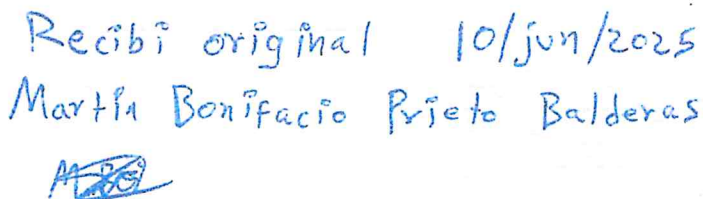 Recibi original 10/jun/2025
Martin Bonifacio Prieto Balderas